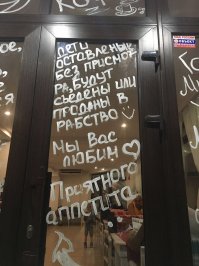 ДЕТИ,
ОСТАВЛЕНЫЕ
БЕЗ ПРИСМОТ
РА, БУДУТ
СЪЕДЕНЫ ИЛИ
ПРОДАНЫ В
РАБСТВО
МЫ ВАС
ЛЮБИМ
Приятного
аппетита
ОБЪЕКТ